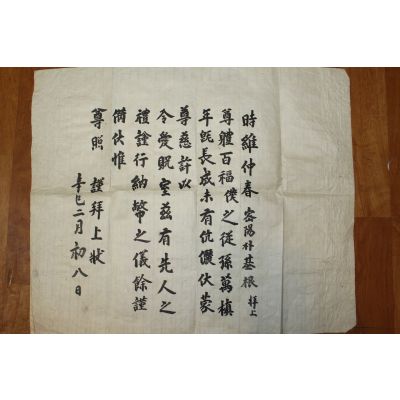 時維仲春 密陽朴基根 拜上
尊體百福僕之從孫萬植
年旣長成未有伉儷伏蒙
尊慈許以
令愛貺室茲有先人之
禮謹行納幣之儀餘謹
備伏惟
尊照 謹拜上狀
辛巳二月 初八日